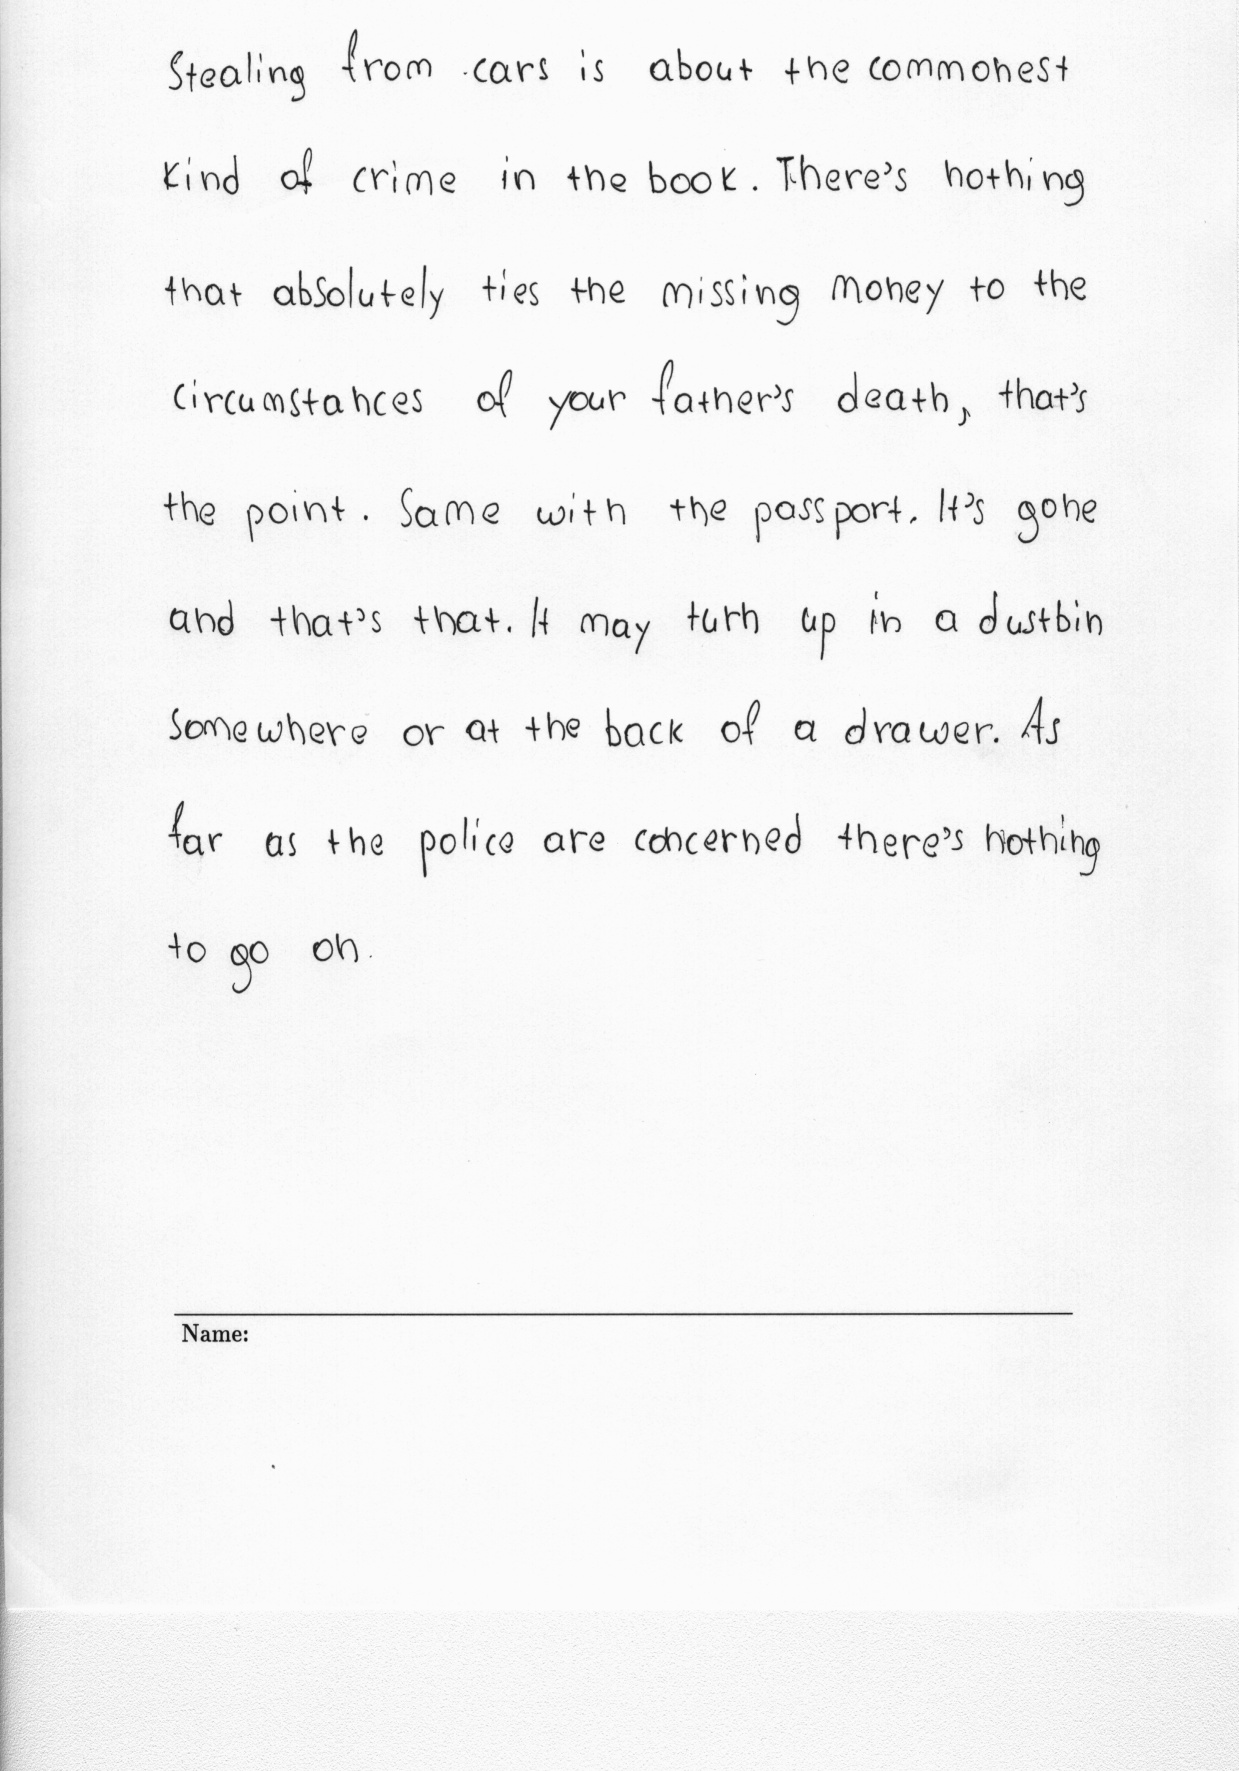 Stealing from cars is about the commonest
kind of crime in the book. There's nothing
that absolutely ties the missing money to the
circumstances of your father's death, that's
the point. Same with the passport. It's gone
and that's that. It may turn up in a dustbin
somewhere or at the back of a drawer. As
far as the police are concerned there's nothing
to go on.
Name: